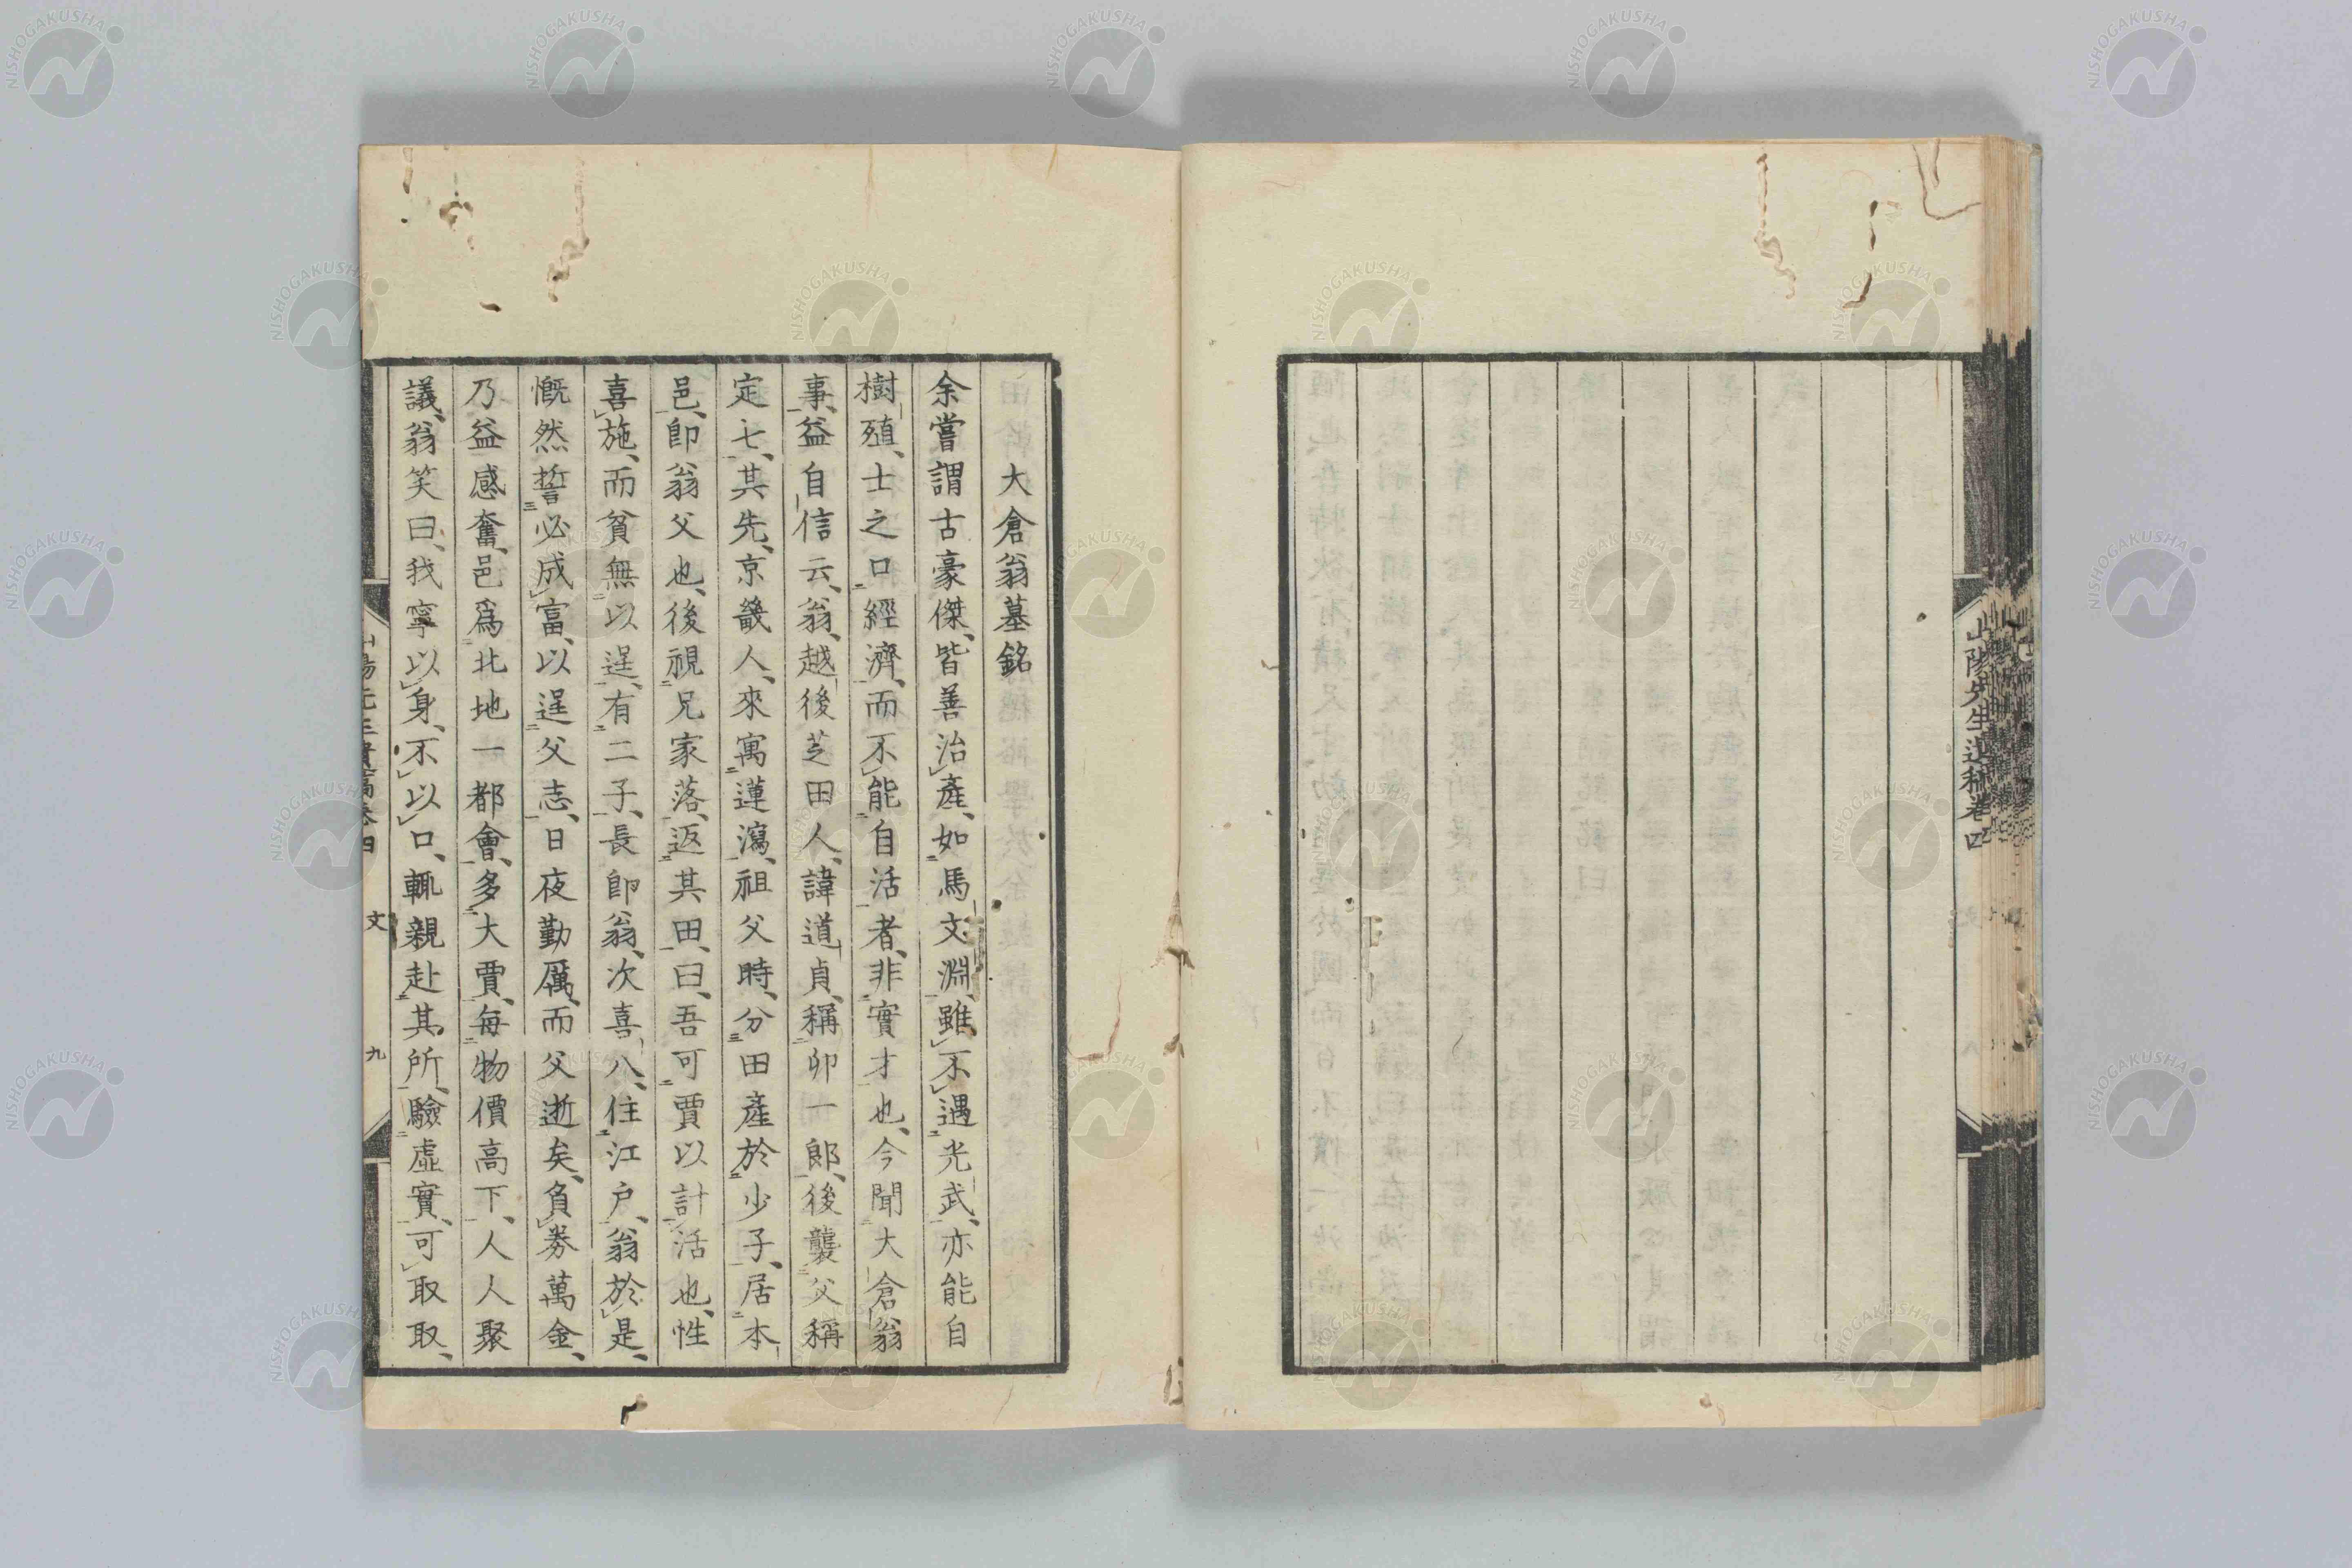 山陽先生遺稿卷四
大倉翁墓銘
余嘗謂古豪傑、皆善治産、如馬文淵、雖不遇光武、亦能自
樹殖、士之口經濟、而不能自活者、非實才也、今聞大倉翁
事、益自信云、翁、越後芝田人、諱道貞、稱卯一郎、後襲父稱
定七、其先、京畿人、來寓蓮瀉、祖父時、分田產於少子、居本
邑、卽翁父也、後視兄家落、返其田、曰、吾可賈以計活也、性
喜施、而貧無以逞、有二子、長卽翁、次喜八、住江戶、翁於是、
慨然誓必成富、以逞父志、日夜勤厲、而父逝矣、負券萬金、
乃益感奮、邑爲北地一都會、多大賈、每物價高下、人人聚
議、翁笑曰、我寧以身、不以口、輒親赴其所、驗虛實、可取取、
文
九
NISHOGAKUSHA